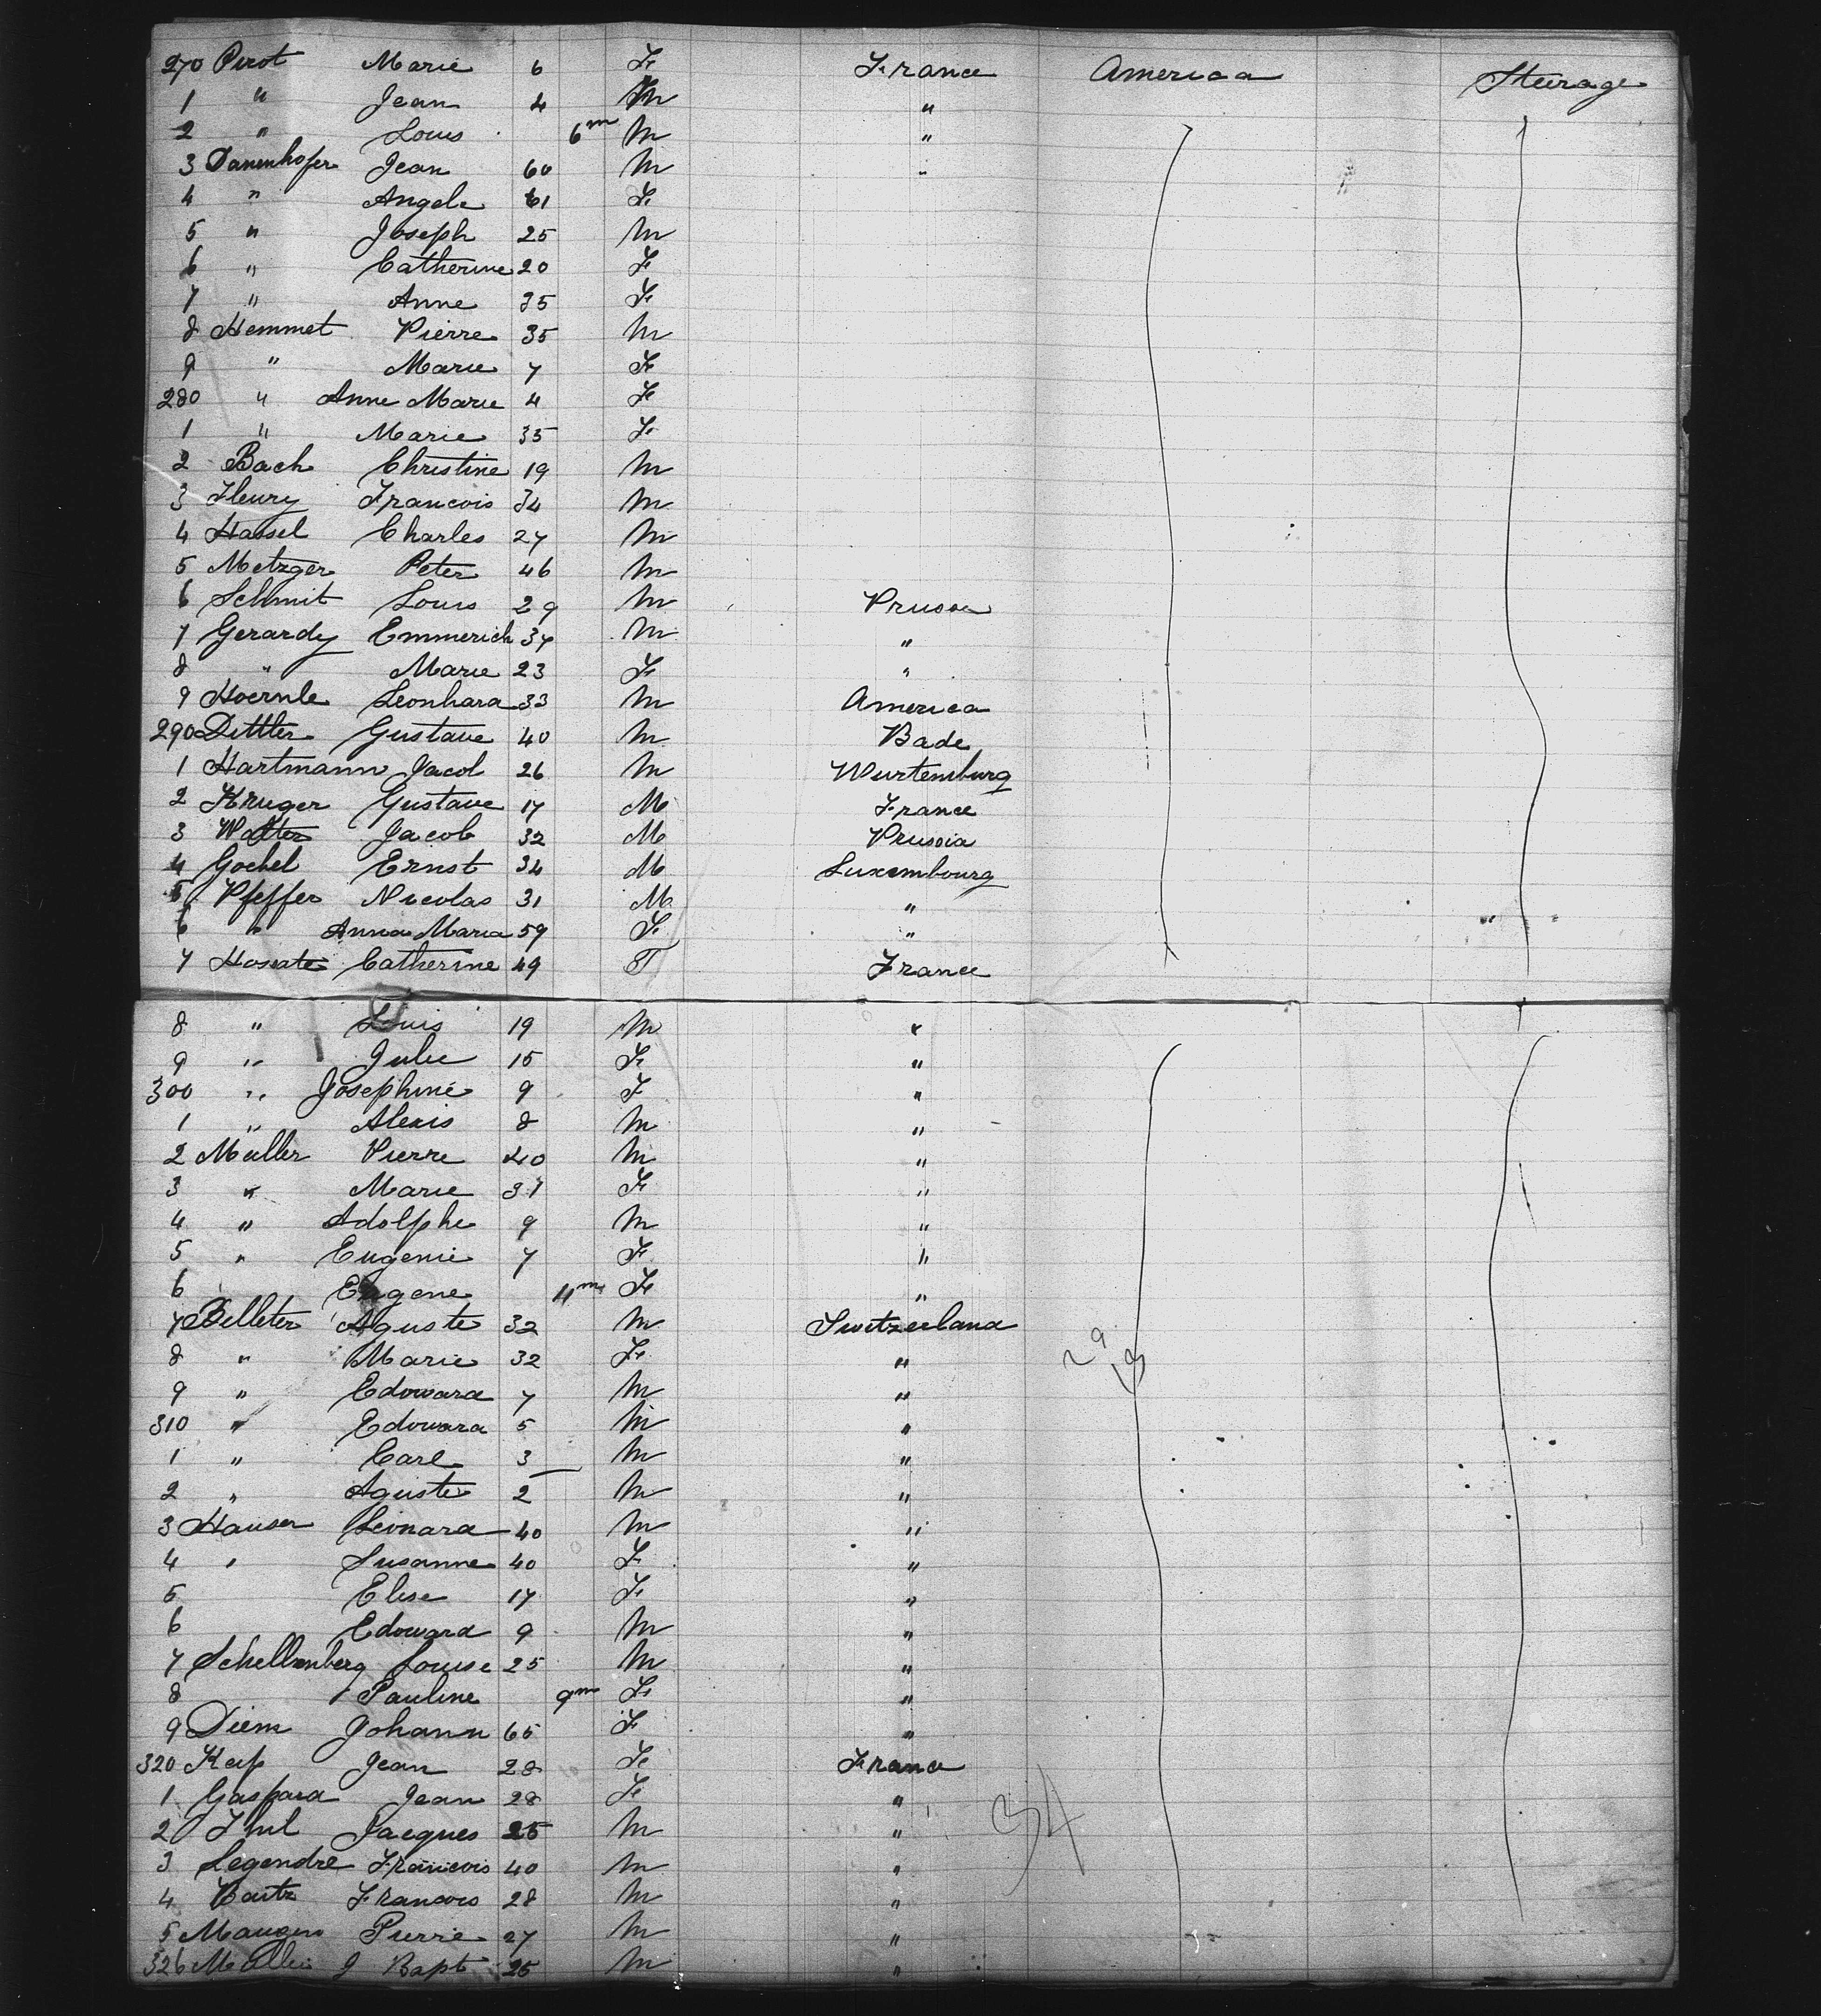 270 Pirot Marie 6 F France America Steerage
1 " Jean 4 M "
2 " Louis 6m M "
3 Danenhofer Jean 60 M "
4 " Angele 61 F
5 " Joseph 25 M
6 " Catherine 20 F
7 " Anne 35 F
8 Hemmet Pierre 35 M
9 " Marie 7 F
280 " Anne Marie 4 F
1 " Marie 35 F
2 Bach Christine 19 M
3 Fleury Francois 34 M
4 Hassel Charles 27 M
5 Metzger Peter 46 M
6 Schmit Louis 29 M Prussia
7 Gerardy Emmerich 37 M "
8 " Marie 23 F "
9 Hoernle Leonhard 33 M America
290 Dittler Gustave 40 M Bade
1 Hartmann Jacob 26 M Wurtemburg
2 Kruger Gustave 17 M France
3 Walter Jacob 32 M Prussia
4 Goebel Ernst 34 M Luxembourg
5 Pfeffer Nicolas 31 M "
6 " Anna Maria 59 F " "
7 Hossate Catherine 49 F France
8 " Louis 19 M "
9 " Julie 15 F "
300 " Josephine 9 F "
1 " Alexis 8 M "
2 Muller Pierre 40 M "
3 " Marie 31 F "
4 " Adolphe 9 M "
5 " Eugenie 7 F "
6 Eugene 11m F "
7 Belleter Aguste 32 M Switzerland
8 " Marie 32 F " 29
9 " Edward 7 M "
310 " Edward 5 M "
1 " Carl 3 M "
2 " Aguste 2 M "
3 Hauser Leonard 40 M "
4 " Susanne 40 F "
5 Elise 17 F "
6 Edward 9 M "
7 Schellenberg Louise 25 M "
8 Pauline 9m F "
9 Diem Johann 65 F "
320 Kap Jean 28 F France
1 Gaspard Jean 28 F "
2 Jhul Jacques 25 M " 34
3 Legendre Francois 40 M "
4 Francois 28 M "
5 Maugen Pierre 27 M "
326 J Bapt 25 M "